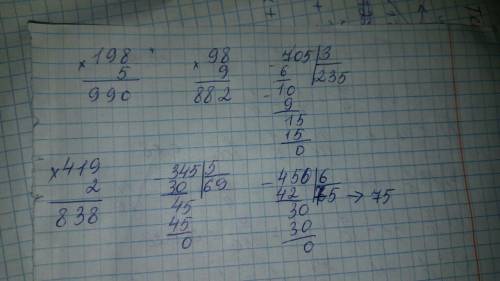 ×198
5
990
×98
9
882
-705|3
6 235
-10
9
15
15
0
×419
2
838
-345|5
30 69
45
45
0
-456|6
42 75→75
30
30
0